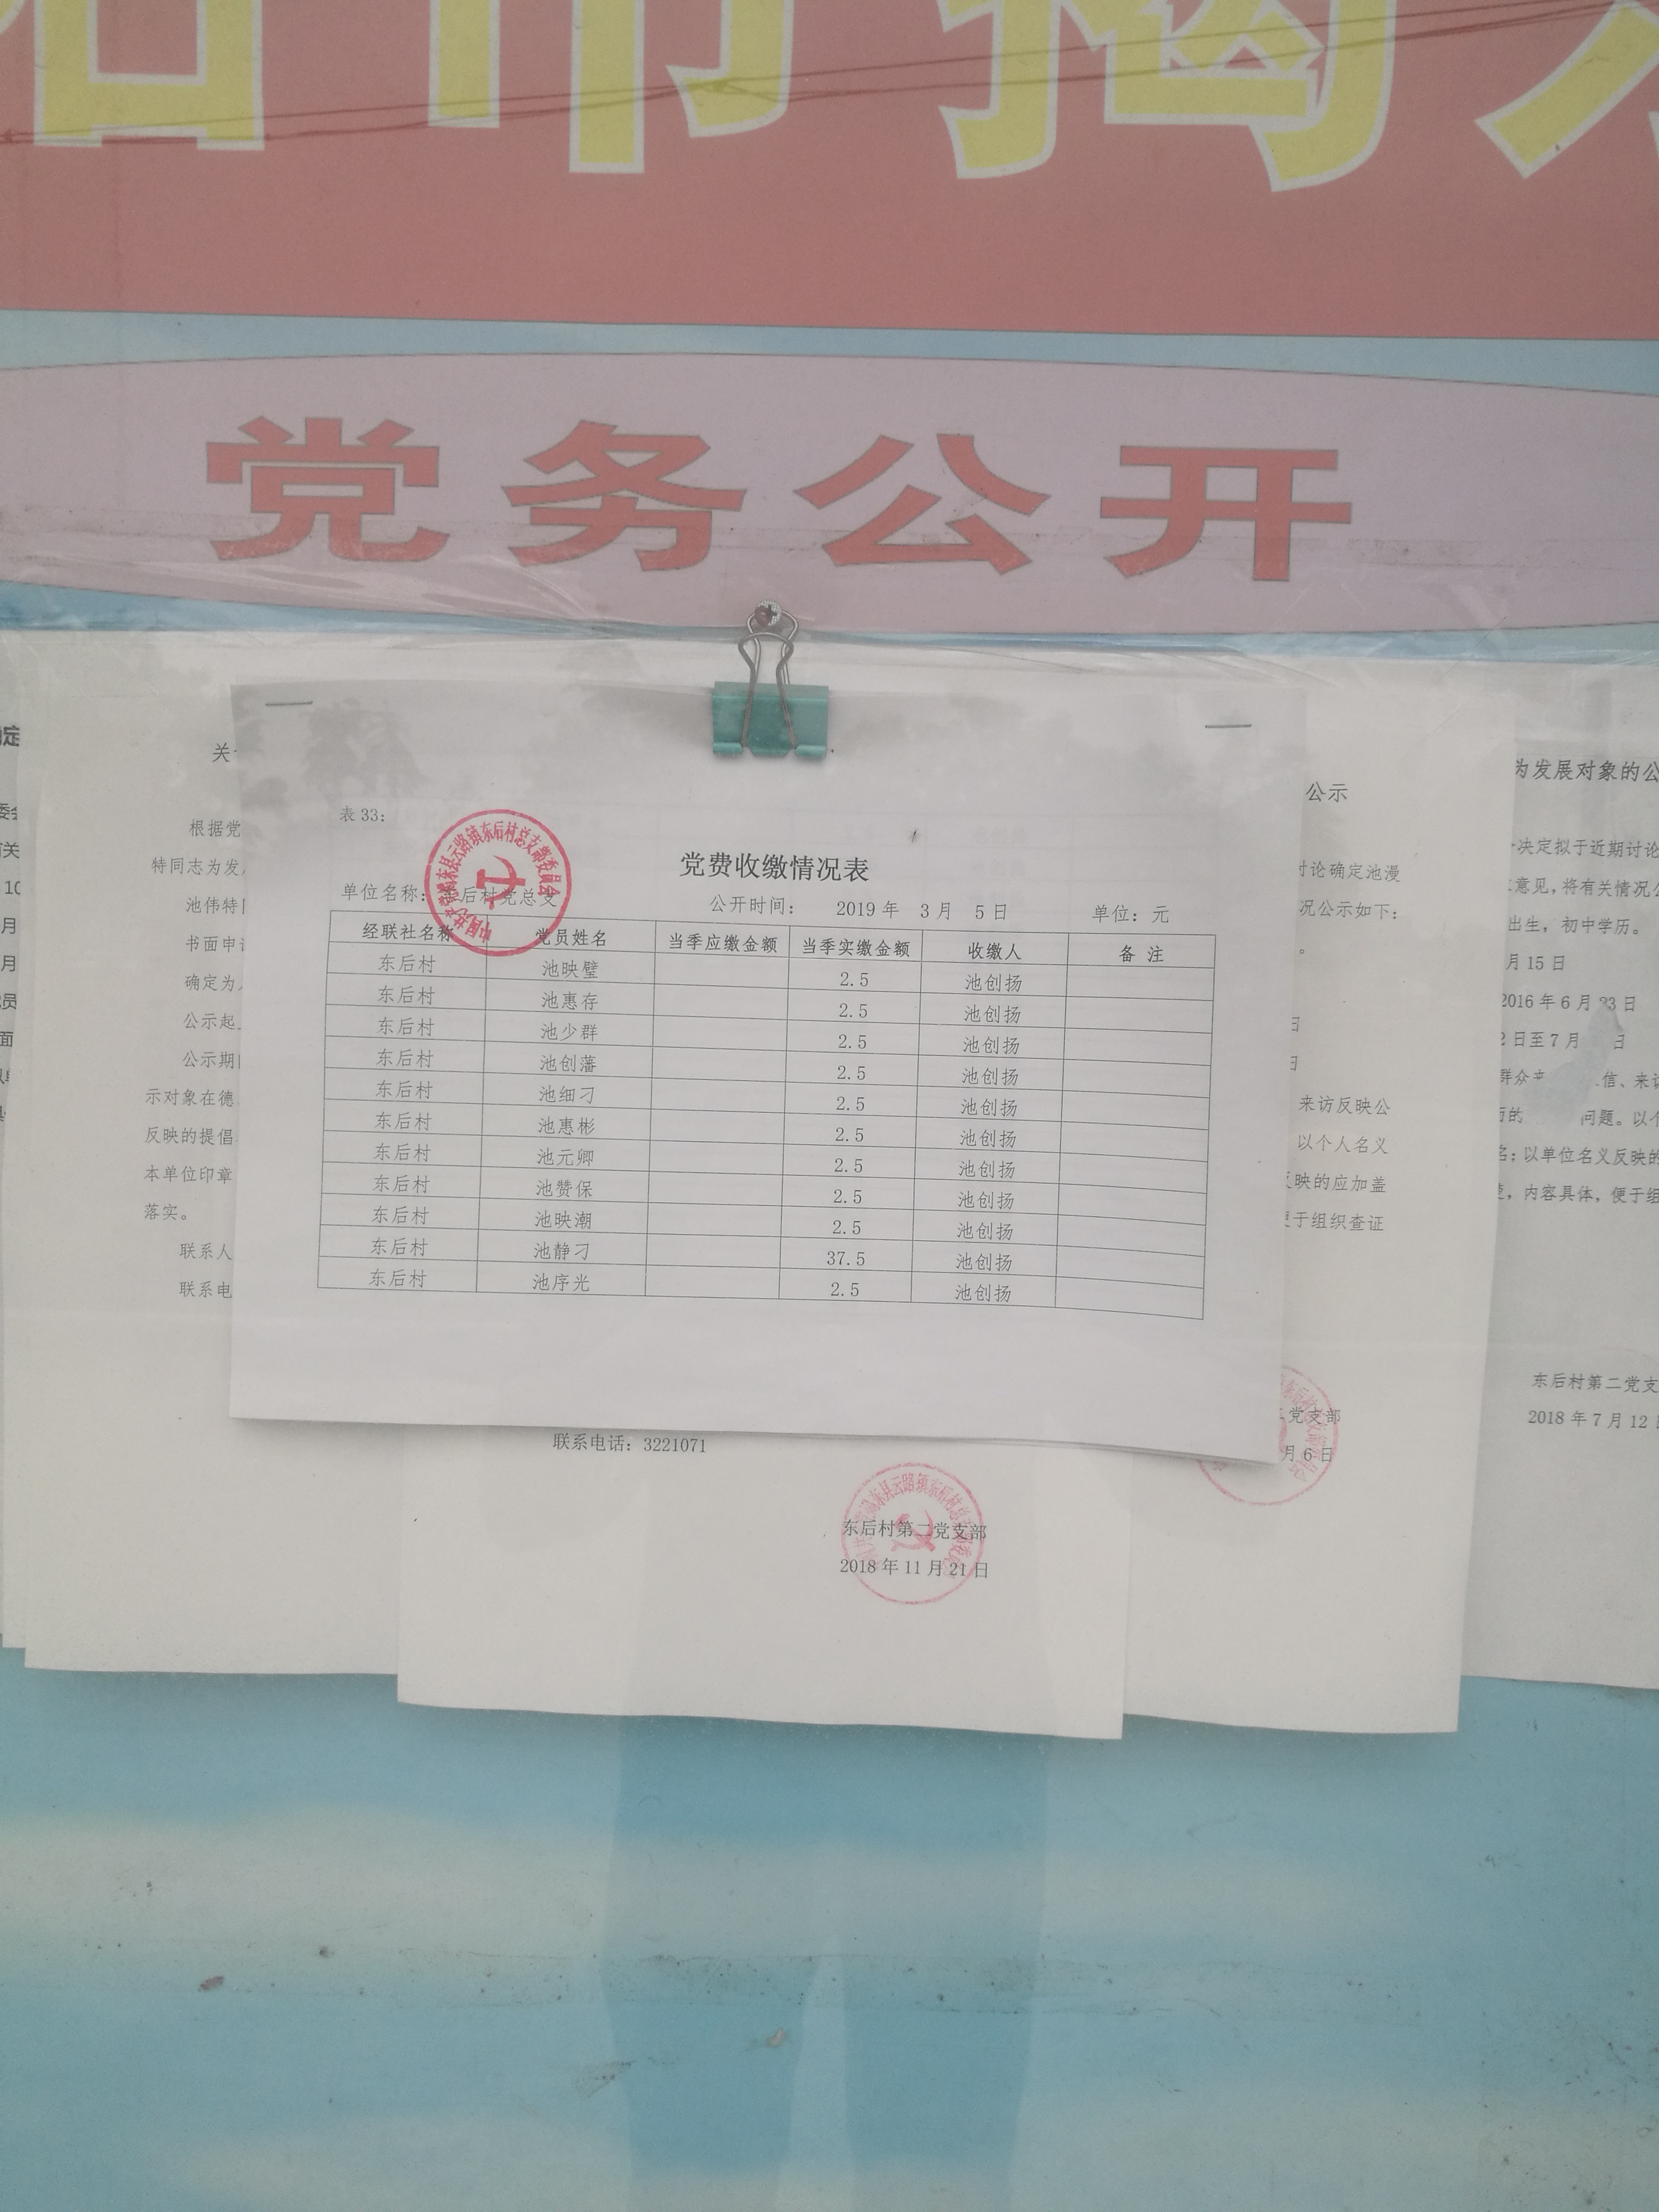 党务公开
表33:
党费收缴情况表
单位名称: 东后村党总支 公开时间: 2019年 3月 5日 单位: 元
经联社名称 党员姓名 当季应缴金额 当季实缴金额 收缴人 备 注
东后村 池映璧 2.5 池创扬
东后村 池惠存 2.5 池创扬
东后村 池少群 2.5 池创扬
东后村 池创藩 2.5 池创扬
东后村 池细刁 2.5 池创扬
东后村 池惠彬 2.5 池创扬
东后村 池元卿 2.5 池创扬
东后村 池赞保 2.5 池创扬
东后村 池映潮 2.5 池创扬
东后村 池静刁 37.5 池创扬
东后村 池序光 2.5 池创扬
联系电话: 3221071
东后村第二党支部
2018年11月21日
关
根据党
特同志为发
池伟特
书面申
确定为
公示起
公示期
示对象在德
反映的提倡
本单位印章
落实。
联系人
联系电
公示
讨论确定池漫
况公示如下:
。
日
日
来访反映公
以个人名义
映的应加盖
于组织查证
党支部
月6日
为发展对象的公
决定拟于近期讨论
意见,将有关情况公
出生,初中学历。
月15日
2016年6月23日
2日至7月 日
群众 信、来访
的 问题。以个
名;以单位名义反映的
,内容具体,便于组
东后村第二党支
2018年7月12